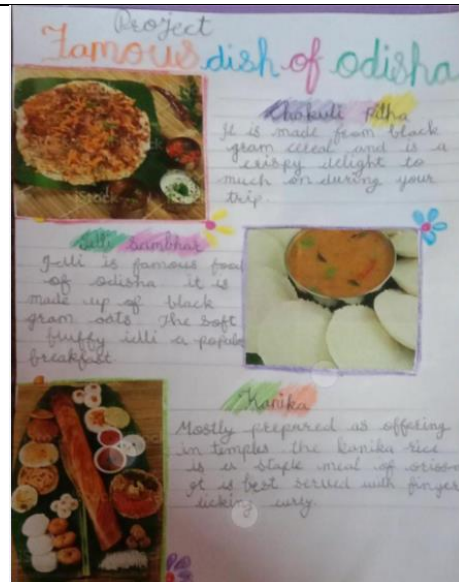 Project
Famous dish of odisha
Chakuli Pitha
It is made from black
gram cereal and is a
crispy delight to
much on during your
trip.
Idli Sambhar
Idli is famous food
of odisha it is
made up of black
gram oats The soft
fluffy idli a popular
breakfast
Kanika
Mostly prepared as offering
in temples the kanika rice
is a staple meal of orissa
It is best served with finger
licking curry.